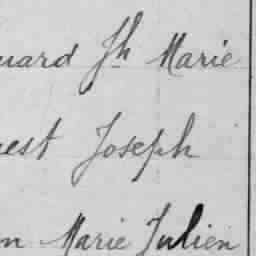 uard Jh Marie
nest Joseph
n Marie Julien